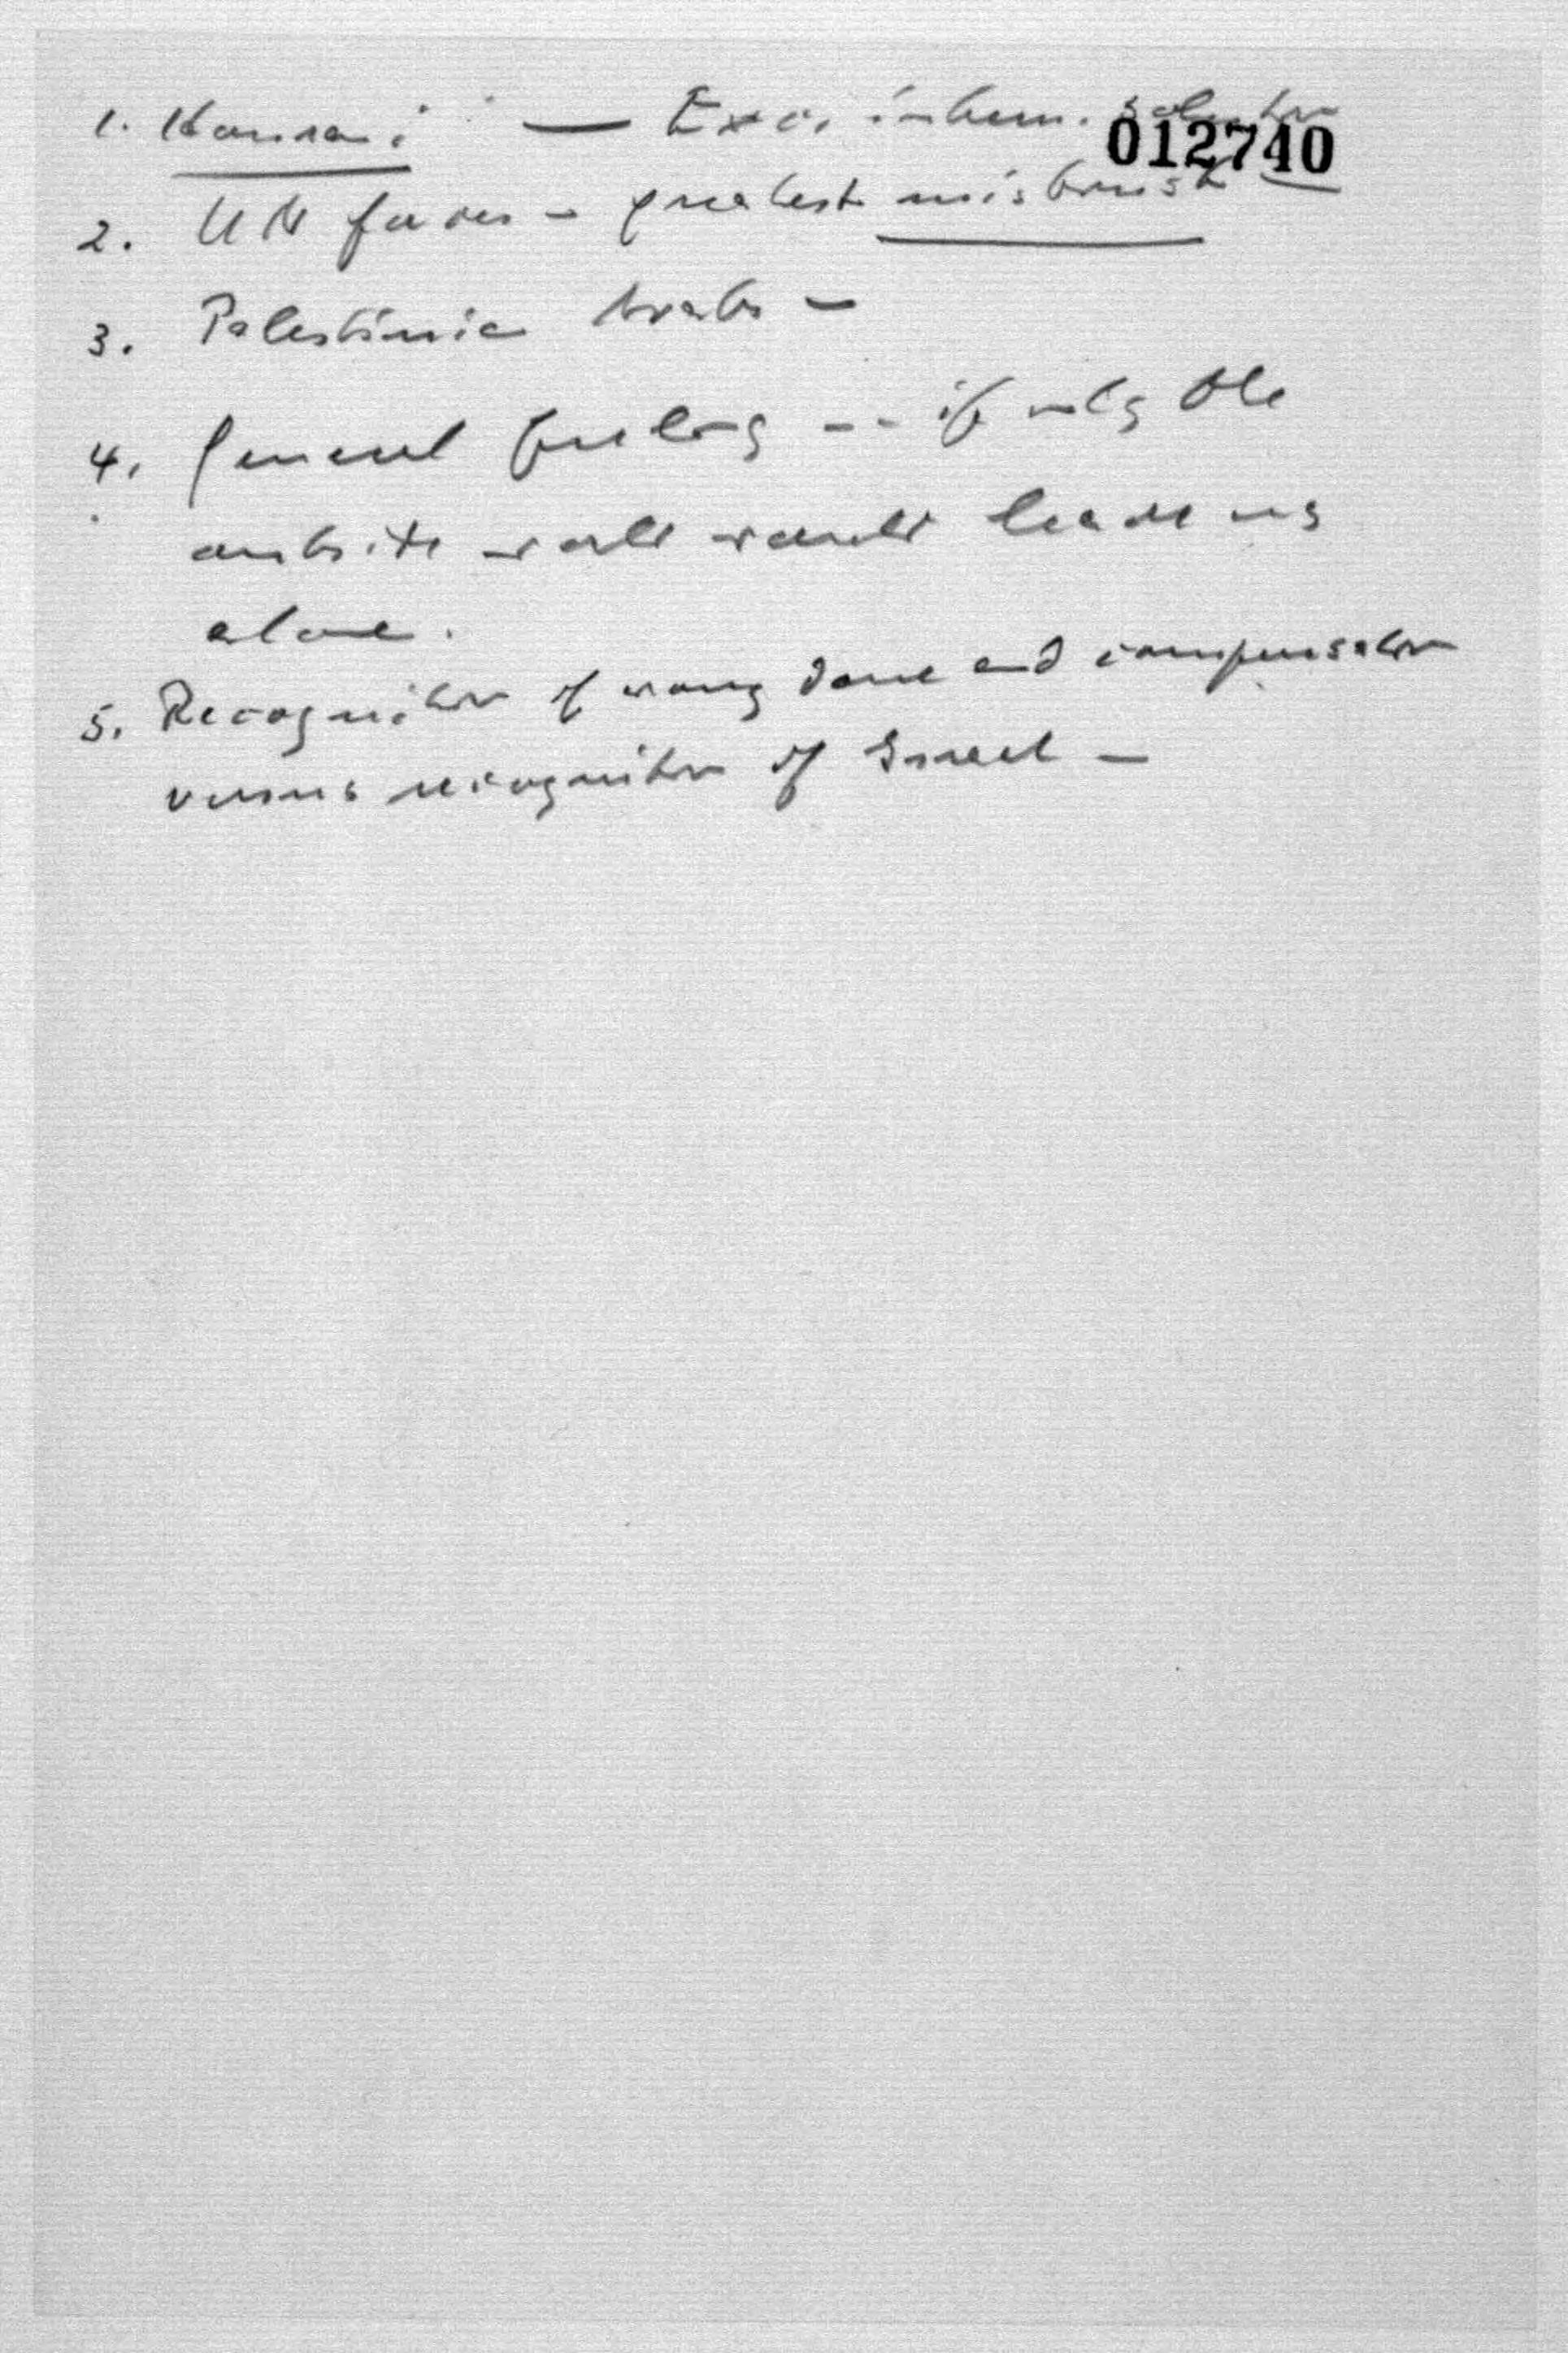 1. — Exc. intern. solution
012740
2. UN forces - greatest mistrust —
3. Palestinian Arabs —
4. General feeling -- if only the
outside world would leave us
alone.
5. Recognition of wrong done and compensation
versus recognition of Israel —